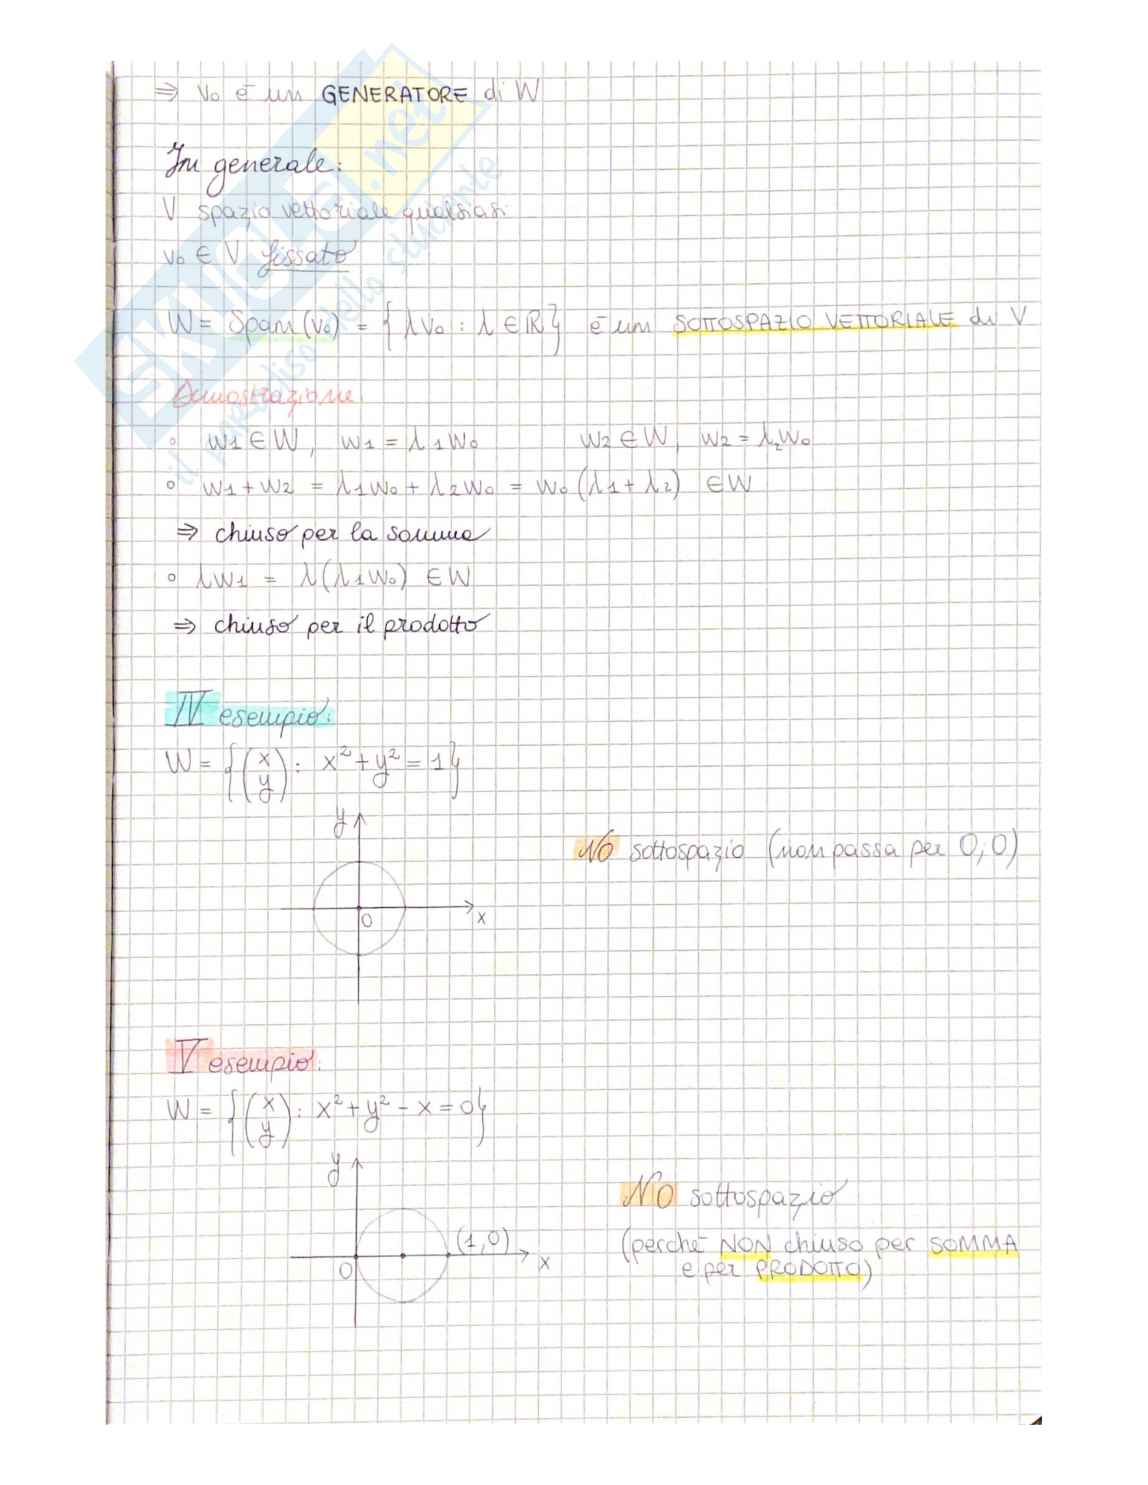 ⇒ v₀ è un GENERATORE di W
In generale:
V spazio vettoriale qualsiasi
v₀ ∈ V fissato
W = Span(v₀) = { λv₀ : λ ∈ ℝ } è un SOTTOSPAZIO VETTORIALE di V
Dimostrazione:
◦ w₁ ∈ W, w₁ = λ₁w₀ w₂ ∈ W, w₂ = λ₂w₀
◦ w₁ + w₂ = λ₁w₀ + λ₂w₀ = w₀(λ₁ + λ₂) ∈ W
⇒ chiuso per la somma
◦ λw₁ = λ(λ₁w₀) ∈ W
⇒ chiuso per il prodotto
IV esempio:
W = { (x y) : x² + y² = 1 }
y
NO sottospazio (non passa per 0,0)
0 x
V esempio:
W = { (x y) : x² + y² - x = 0 }
y
NO sottospazio
(1,0)
(perché NON chiuso per SOMMA
0 x
e per PRODOTTO)
SKUOLA.net
il paradiso dello studente